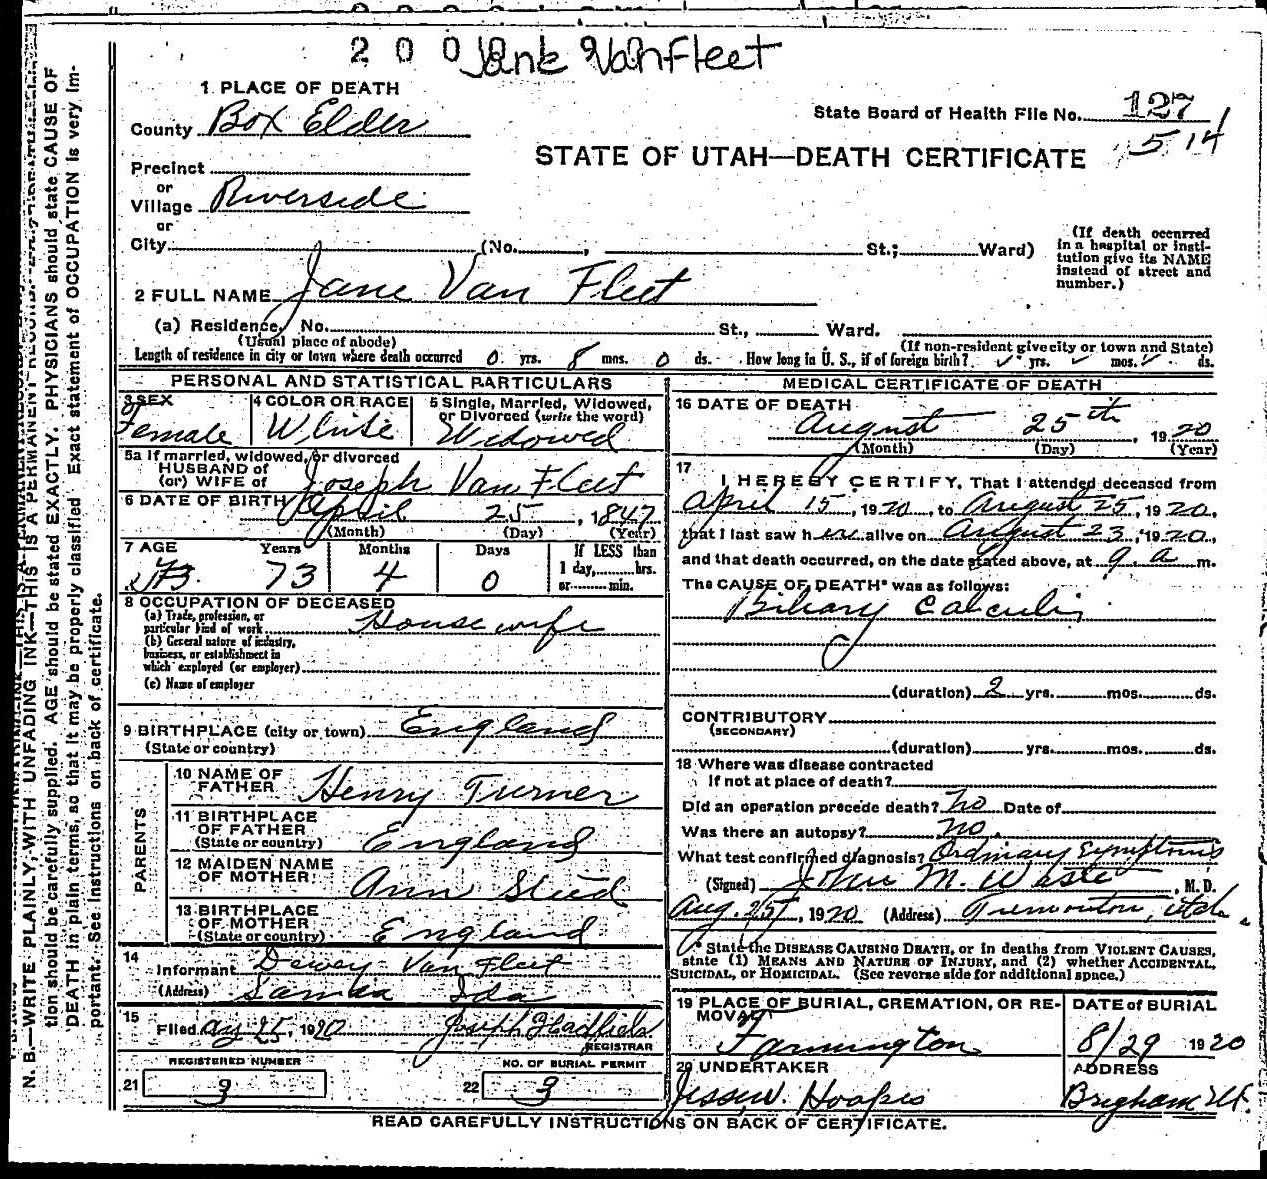 2 0 0 Jane VanFleet
1 PLACE OF DEATH
County Box Elder
State Board of Health File No. 127
514
STATE OF UTAH—DEATH CERTIFICATE
Precinct
or
Village Riverside
or
City (No. , St.; Ward)
(If death occurred
in a hospital or insti-
tution give its NAME
instead of street and
number.)
2 FULL NAME Jane Van Fleet
(a) Residence, No. St., Ward.
(Usual place of abode) (If non-resident give city or town and State)
Length of residence in city or town where death occurred 0 yrs. 8 mos. 0 ds. How long in U. S., if of foreign birth? yrs. mos. ds.
PERSONAL AND STATISTICAL PARTICULARS
3 SEX
Female
4 COLOR OR RACE
White
5 Single, Married, Widowed,
or Divorced (write the word)
Widowed
5a If married, widowed, or divorced
HUSBAND of
(or) WIFE of Joseph Van Fleet
6 DATE OF BIRTH April 25, 1847
(Month) (Day) (Year)
7 AGE Years Months Days If LESS than
1 day, hrs.
or min.
73 73 4 0
8 OCCUPATION OF DECEASED
(a) Trade, profession, or
particular kind of work House wife
(b) General nature of industry,
business, or establishment in
which employed (or employer)
(c) Name of employer
9 BIRTHPLACE (city or town) England
(State or country)
PARENTS
10 NAME OF
FATHER Henry Turner
11 BIRTHPLACE
OF FATHER
(State or country) England
12 MAIDEN NAME
OF MOTHER Ann Stud
13 BIRTHPLACE
OF MOTHER
(State or country) England
14
Informant Dewey Van Fleet
(Address) Ida
15
Filed Aug 25, 1920 Joseph Hadfield
REGISTRAR
REGISTERED NUMBER NO. OF BURIAL PERMIT
21 9 22 9
MEDICAL CERTIFICATE OF DEATH
16 DATE OF DEATH
August 25th, 1920
(Month) (Day) (Year)
17
I HEREBY CERTIFY, That I attended deceased from
April 15, 1920, to August 25, 1920,
that I last saw her alive on August 23, 1920,
and that death occurred, on the date stated above, at 9 a m.
The CAUSE OF DEATH* was as follows:
Biliary Calculi
(duration) 2 yrs. mos. ds.
CONTRIBUTORY
(SECONDARY)
(duration) yrs. mos. ds.
18 Where was disease contracted
If not at place of death?
Did an operation precede death? No Date of
Was there an autopsy? No.
What test confirmed diagnosis? Ordinary symptoms
(Signed) John M. , M. D.
Aug. 25, 1920 (Address) Tremonton, Utah
* State the DISEASE CAUSING DEATH, or in deaths from VIOLENT CAUSES,
state (1) MEANS AND NATURE OF INJURY, and (2) whether ACCIDENTAL,
SUICIDAL, or HOMICIDAL. (See reverse side for additional space.)
19 PLACE OF BURIAL, CREMATION, OR RE-
MOVAL
Farmington
DATE of BURIAL
8/29 1920
20 UNDERTAKER
Jesse W. Hoopes
ADDRESS
Brigham Ut.
READ CAREFULLY INSTRUCTIONS ON BACK OF CERTIFICATE.
N. B.—WRITE PLAINLY, WITH UNFADING INK—THIS IS A PERMANENT RECORD.
tion should be carefully supplied. AGE should be stated EXACTLY. PHYSICIANS should state CAUSE OF
DEATH in plain terms, so that it may be properly classified. Exact statement of OCCUPATION is very im-
portant. See instructions on back of certificate.